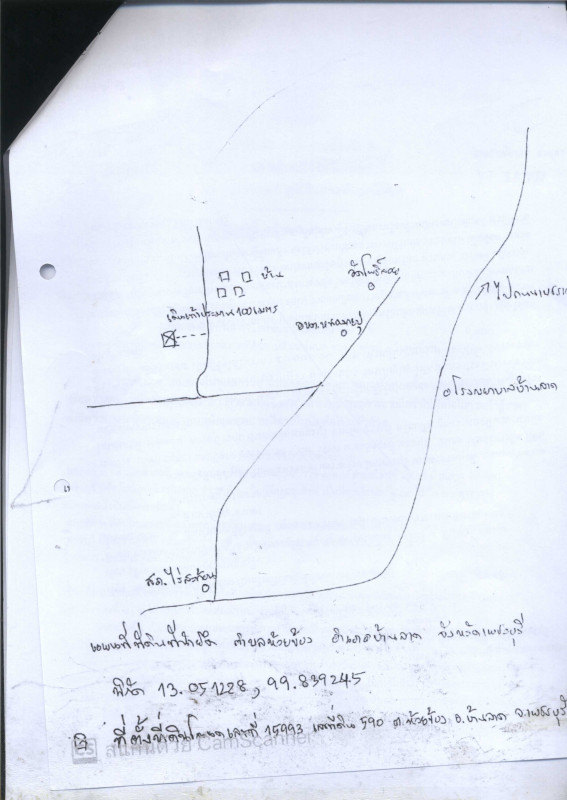 บ้าน
วัดโพธิ์ลอย
เดินเท้าประมาณ 100 เมตร
อบต.
ไปถนนเพชร
โรงพยาบาลบ้านลาด
สภ.ไร่สะท้อน
แผนที่ที่ดินที่นำยึด ตำบลห้วยข้อง อำเภอบ้านลาด จังหวัดเพชรบุรี
พิกัด 13.051228, 99.839245
ที่ตั้งที่ดินโฉนดเลขที่ 15993 เลขที่ดิน 590 ต.ห้วยข้อง อ.บ้านลาด จ.เพชรบุรี
CS สแกนด้วย CamScanner